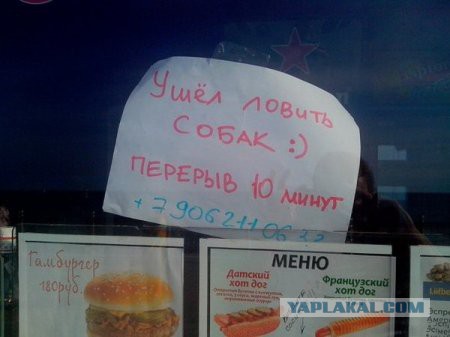 Ушёл ловить
СОБАК :)
ПЕРЕРЫВ 10 минут
Гамбургер
180руб.
МЕНЮ
Датский
хот дог
Французский
хот дог
YAPLAKAL.COM